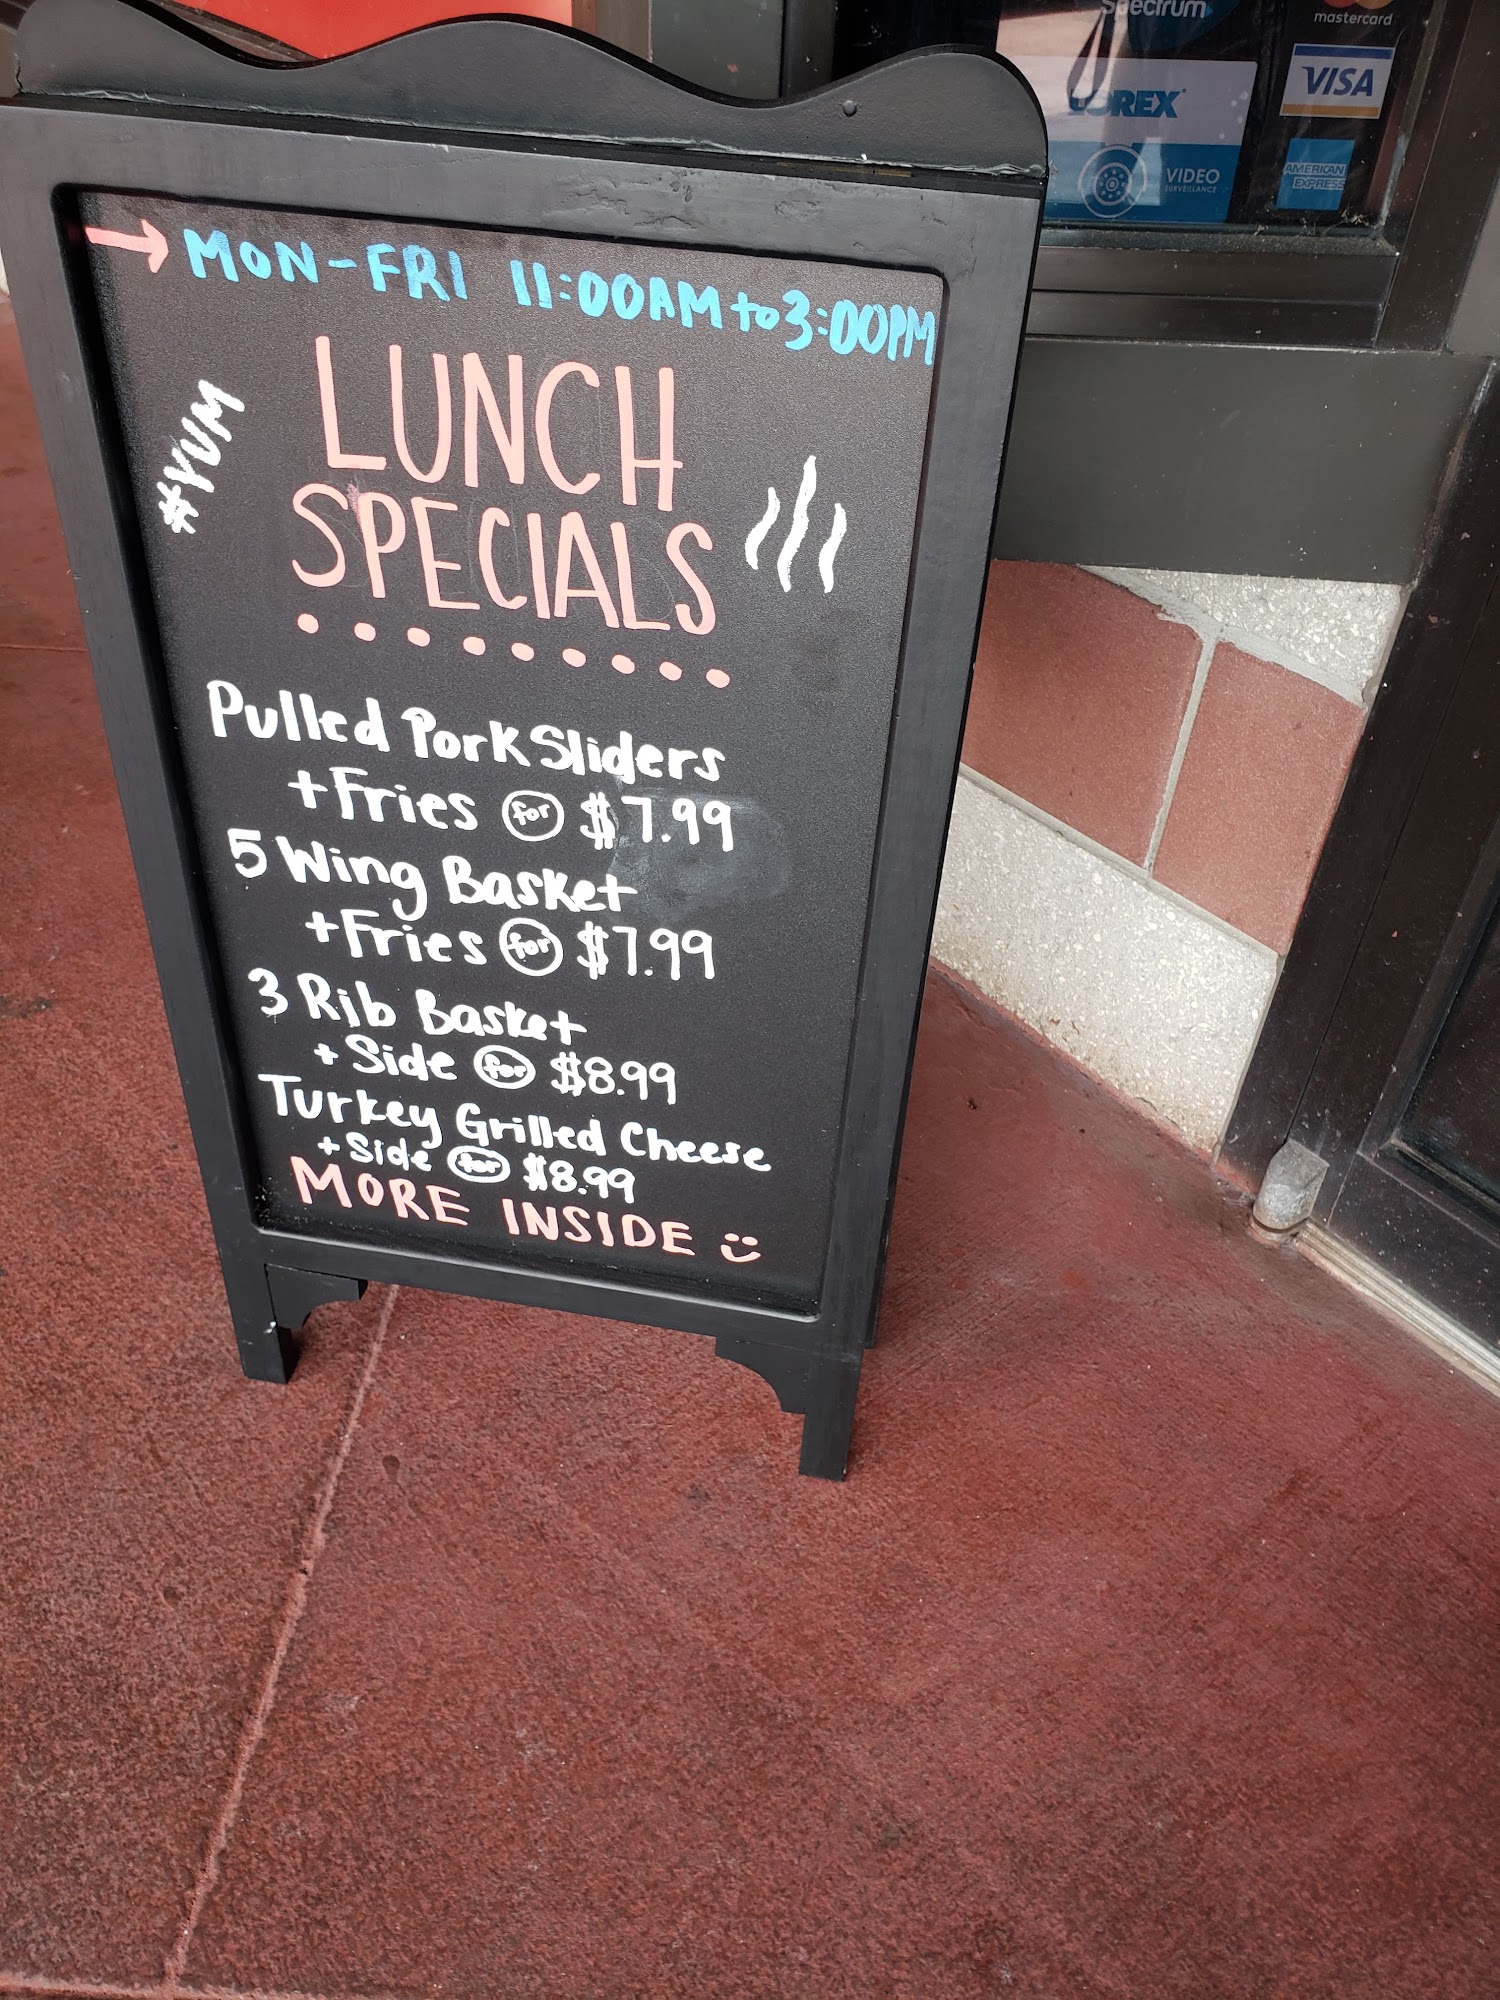 MON-FRI 11:00AM to 3:00PM
#YUM
LUNCH
SPECIALS
Pulled Pork Sliders
+Fries for $7.99
5 Wing Basket
+Fries for $7.99
3 Rib Basket
+ Side for $8.99
Turkey Grilled Cheese
+ Side for $8.99
MORE INSIDE
Spectrum
LOREX
VIDEO
SURVEILLANCE
mastercard
VISA
AMERICAN
EXPRESS